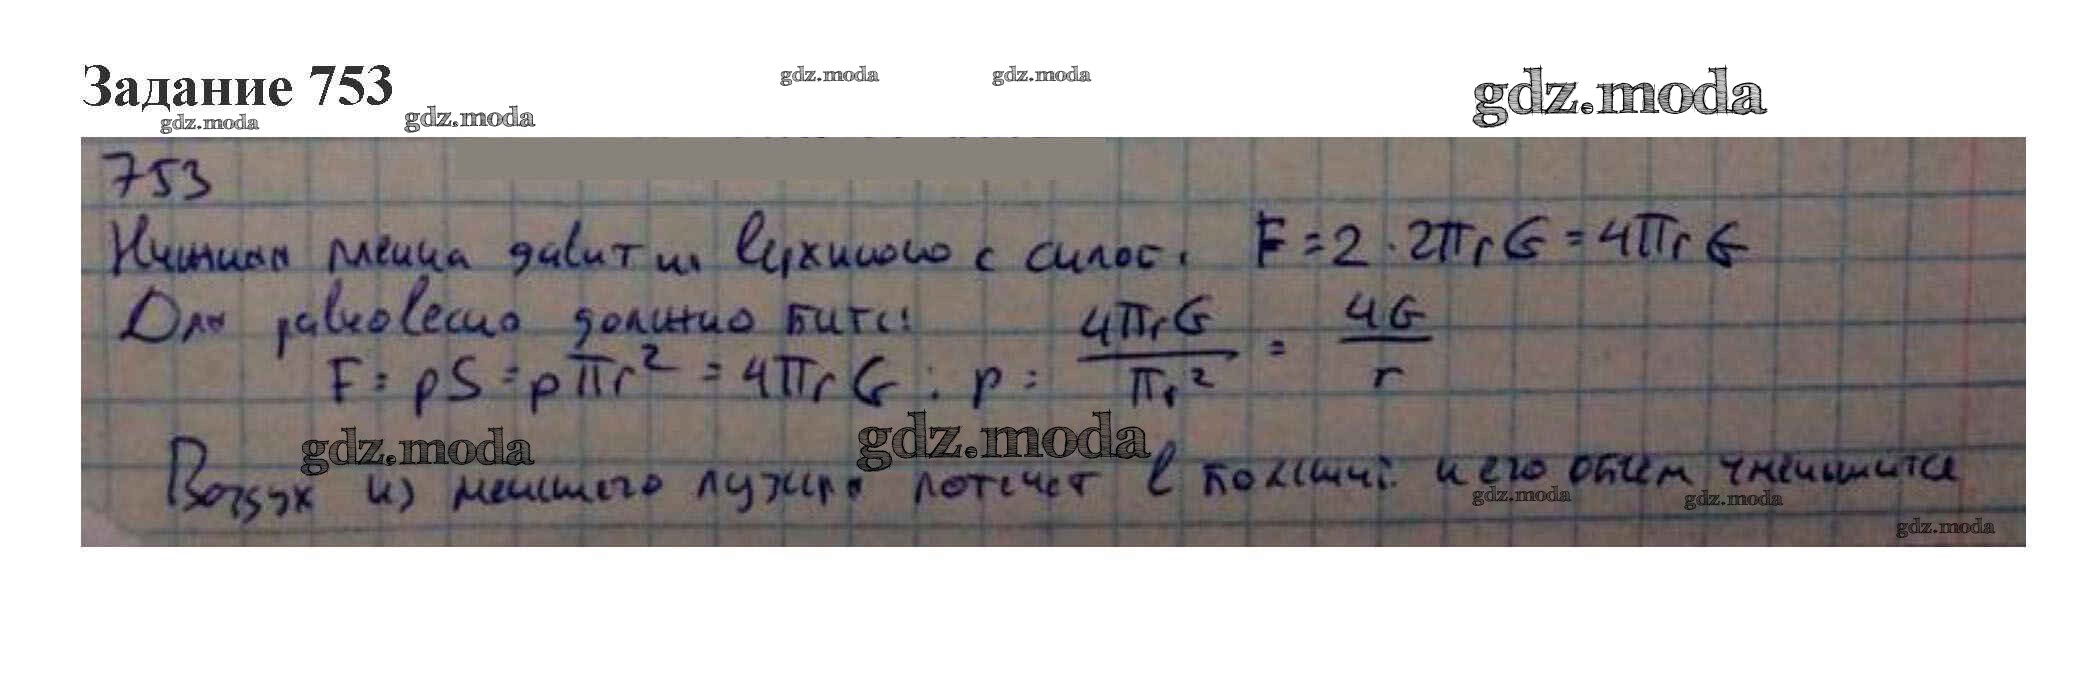 Задание 753
gdz.moda gdz.moda gdz.moda
gdz.moda gdz.moda
753
Нижняя пленка давит на верхнюю с силой: F = 2 · 2πrG = 4πrG
Для равновесия должно бить:
F = pS = pπr² = 4πrG ; p = 4πrG / πr² = 4G / r
gdz.moda gdz.moda
Воздух из меншего пузиря потечет в больший и его обем уменшится
gdz.moda gdz.moda
gdz.moda